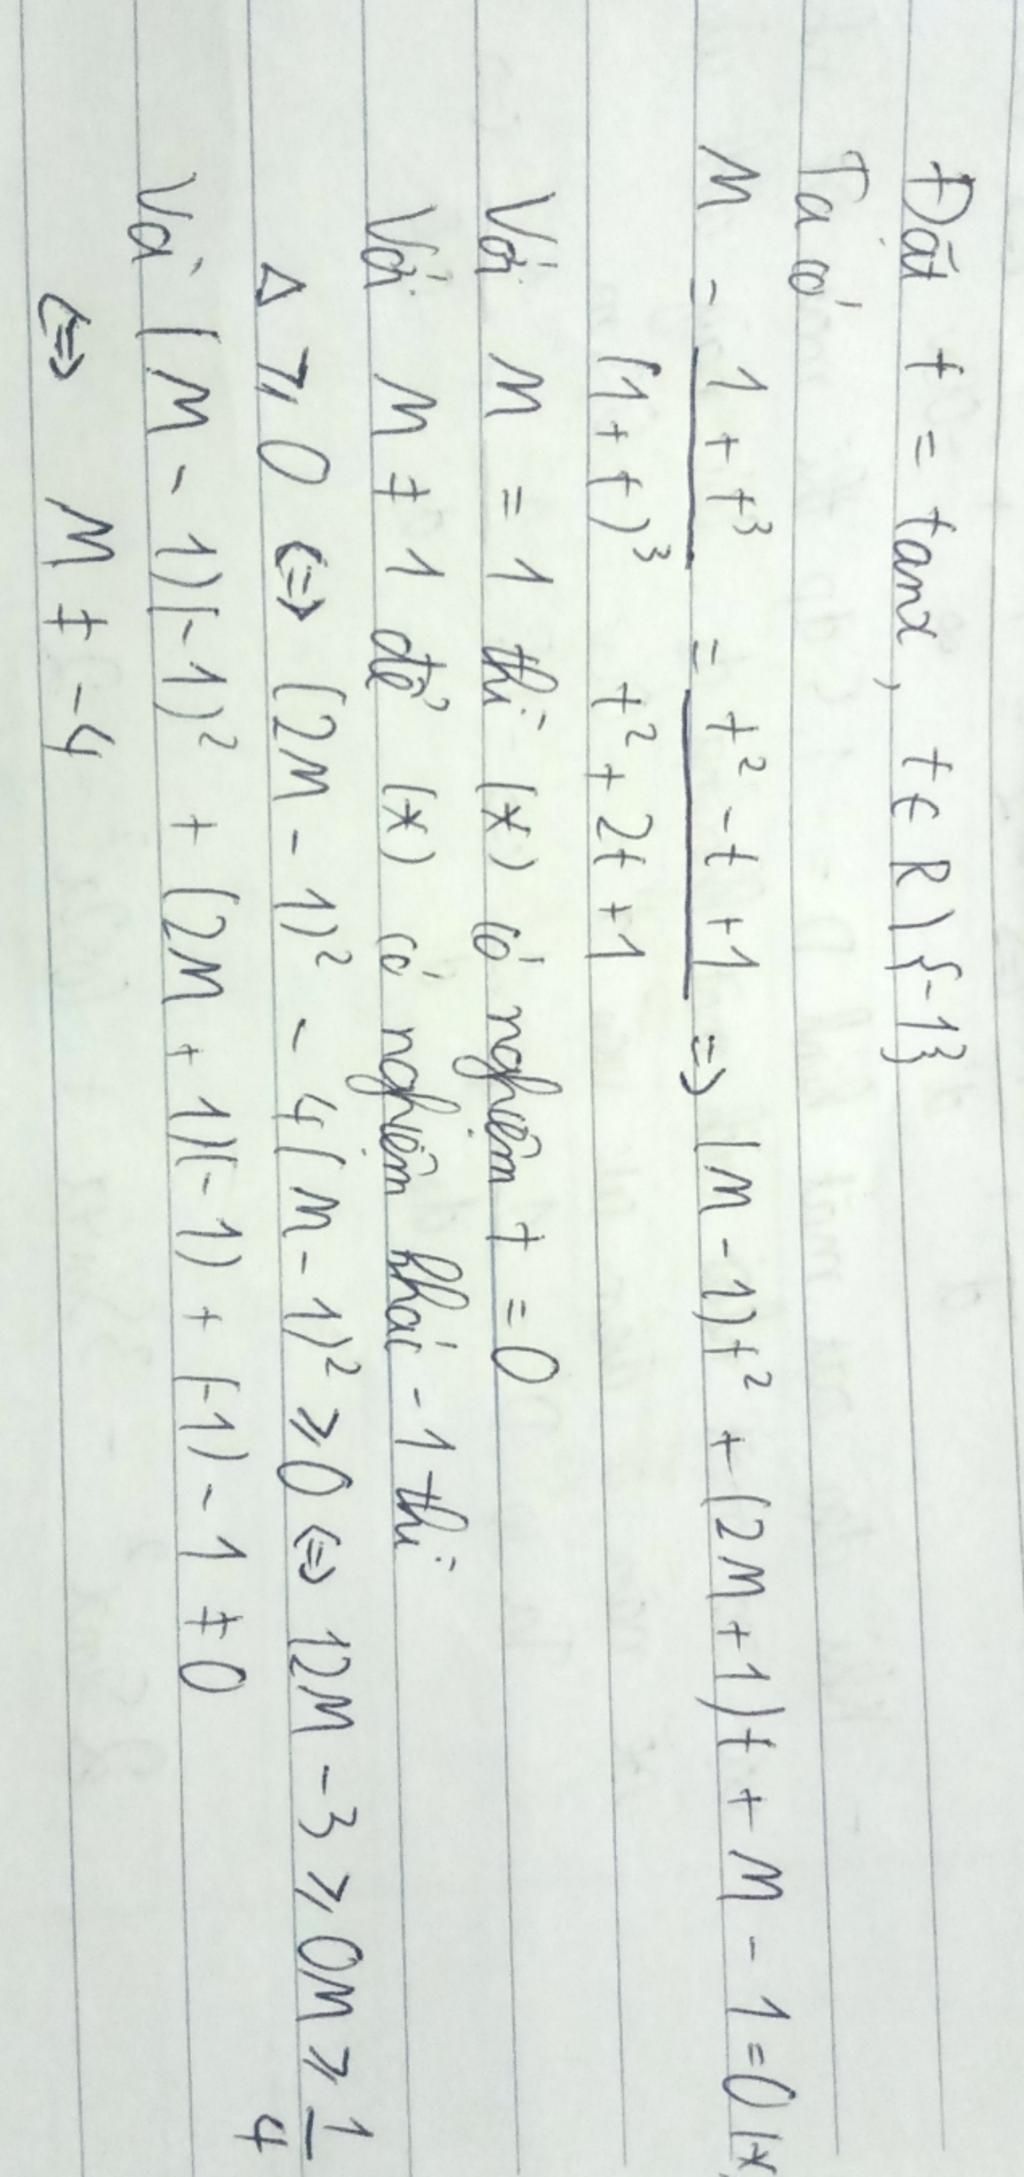 Đặt t = tanx, t ∈ R \ {-1}
Ta có
M = (1 + t³)/(1 + t)³ = (t² - t + 1)/(t² + 2t + 1) => (M - 1)t² + (2M + 1)t + M - 1 = 0 (*
Với M = 1 thì (*) có nghiệm t = 0
Với M ≠ 1 để (*) có nghiệm khác -1 thì
Δ ⩾ 0 <=> (2M - 1)² - 4(M - 1)² ⩾ 0 <=> 12M - 3 ⩾ 0 M ⩾ 1/4
Và (M - 1)(-1)² + (2M + 1)(-1) + (-1) - 1 ≠ 0
<=> M ≠ -4